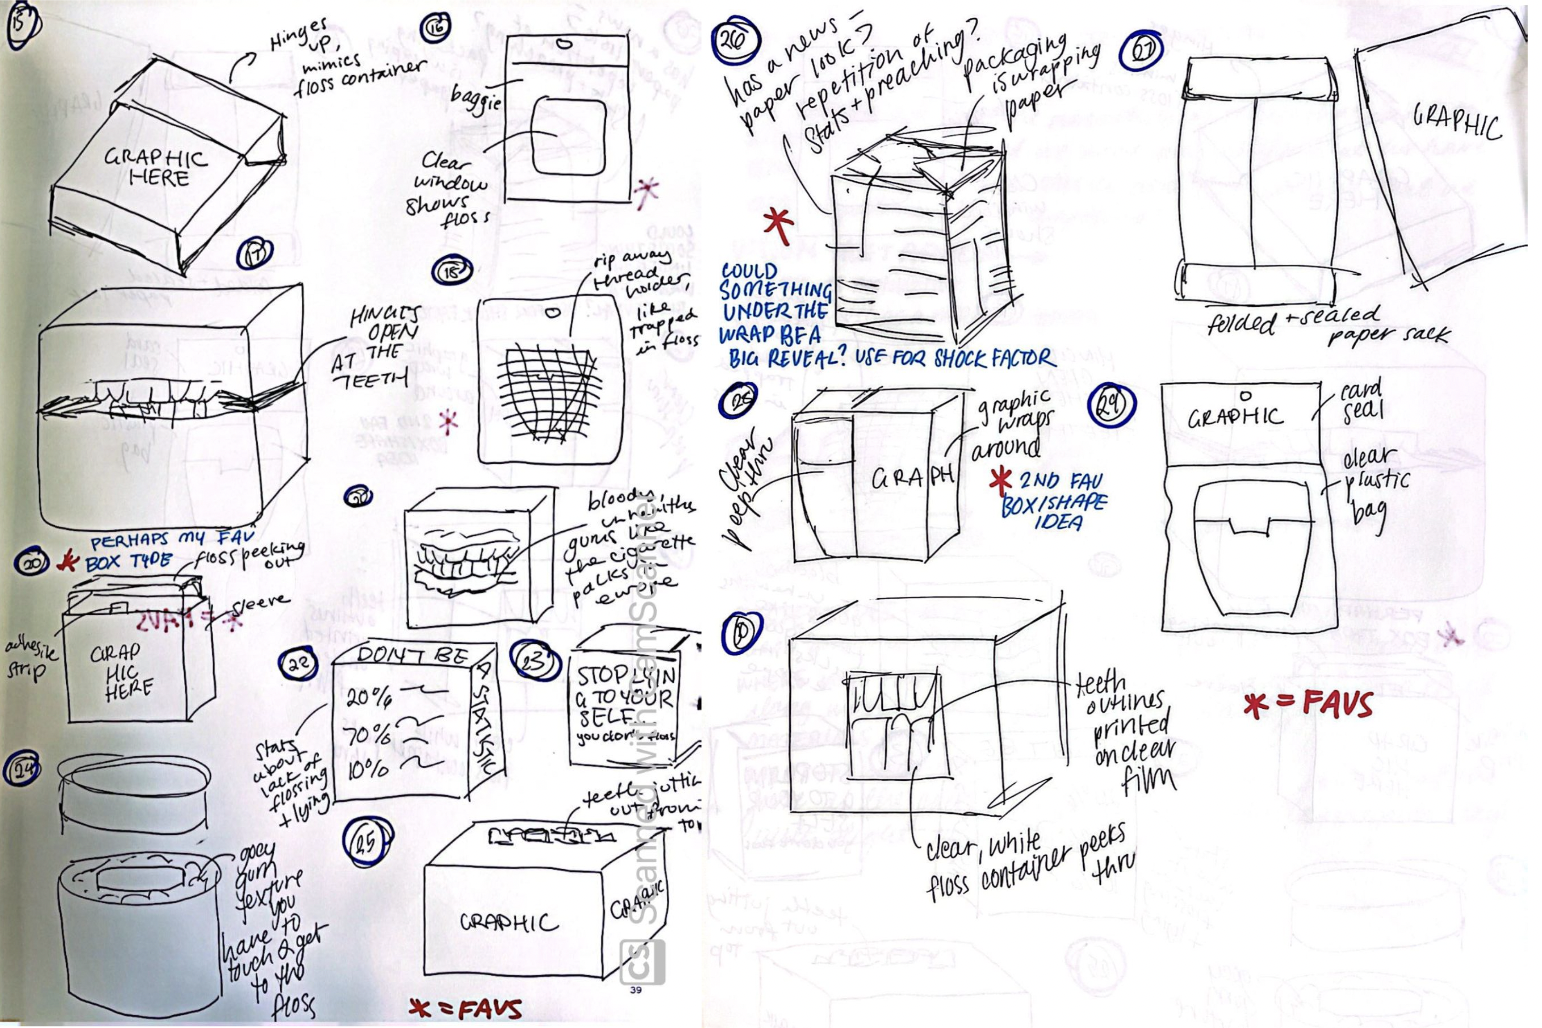 15
Hinges
up,
mimics
floss container
GRAPHIC
HERE
16
baggie
Clear
window
shows
floss
*
17
HINGES
OPEN
AT THE
TEETH
* PERHAPS MY FAV
BOX TYPE
18
rip away
thread
holder,
like
trapped
in floss
*
20
floss peeking
out
sleeve
adhesive
strip
GRAP
HIC
HERE
bloody,
unhealthy
gums like
the cigarette
packs in
europe
22
DON'T BE
A STATISTIC
20%
70%
10%
stats
about
lack of
flossing
+ lying
23
STOP LYIN
G TO YOUR
SELF
you don't floss
24
gooey
gum
texture
you
have to
touch 2 get
to the
floss
25
teeth jutting
out from
top
GRAPHIC
GRAPHIC
* = FAVS
CS Scanned with CamScanner
39
26
has a news-
paper look?
repetition of
stats + preaching?
packaging
is wrapping
paper
*
COULD
SOMETHING
UNDER THE
WRAP BE A
BIG REVEAL? USE FOR SHOCK FACTOR
27
GRAPHIC
folded + sealed
paper sack
28
Clear
peep thru
GRAPH
graphic
wraps
around
* 2ND FAV
BOX/SHAPE
IDEA
29
GRAPHIC
card
seal
clear
plastic
bag
30
teeth
outlines
printed
on clear
film
clear, white
floss container peeks
thru
* = FAVS